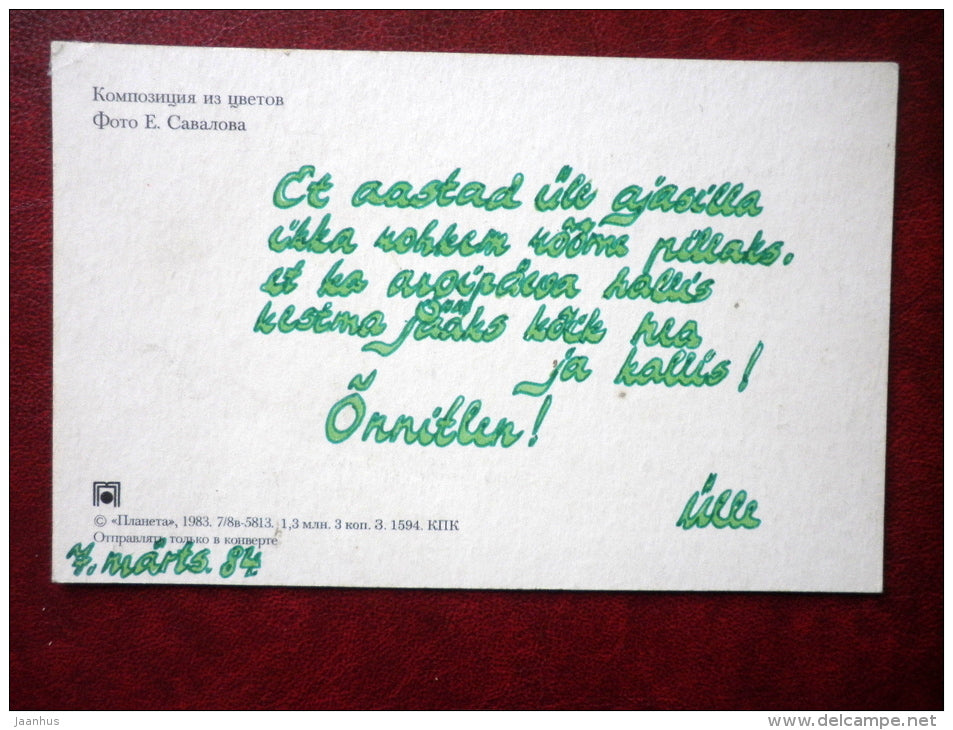 Композиция из цветов
Фото Е. Савалова
Et aastad üle ajasilla
ikka rohkem rõõmu pillaks,
et ka argipäeva hallis
kestma jääks kõik hea
ja kallis!
Õnnitlen!
Ülle
© «Планета», 1983. 7/8в-5813. 1,3 млн. 3 коп. З. 1594. КПК
Отправлять только в конверте
7. märts. 84.
Jaanhus
www.delcampe.net